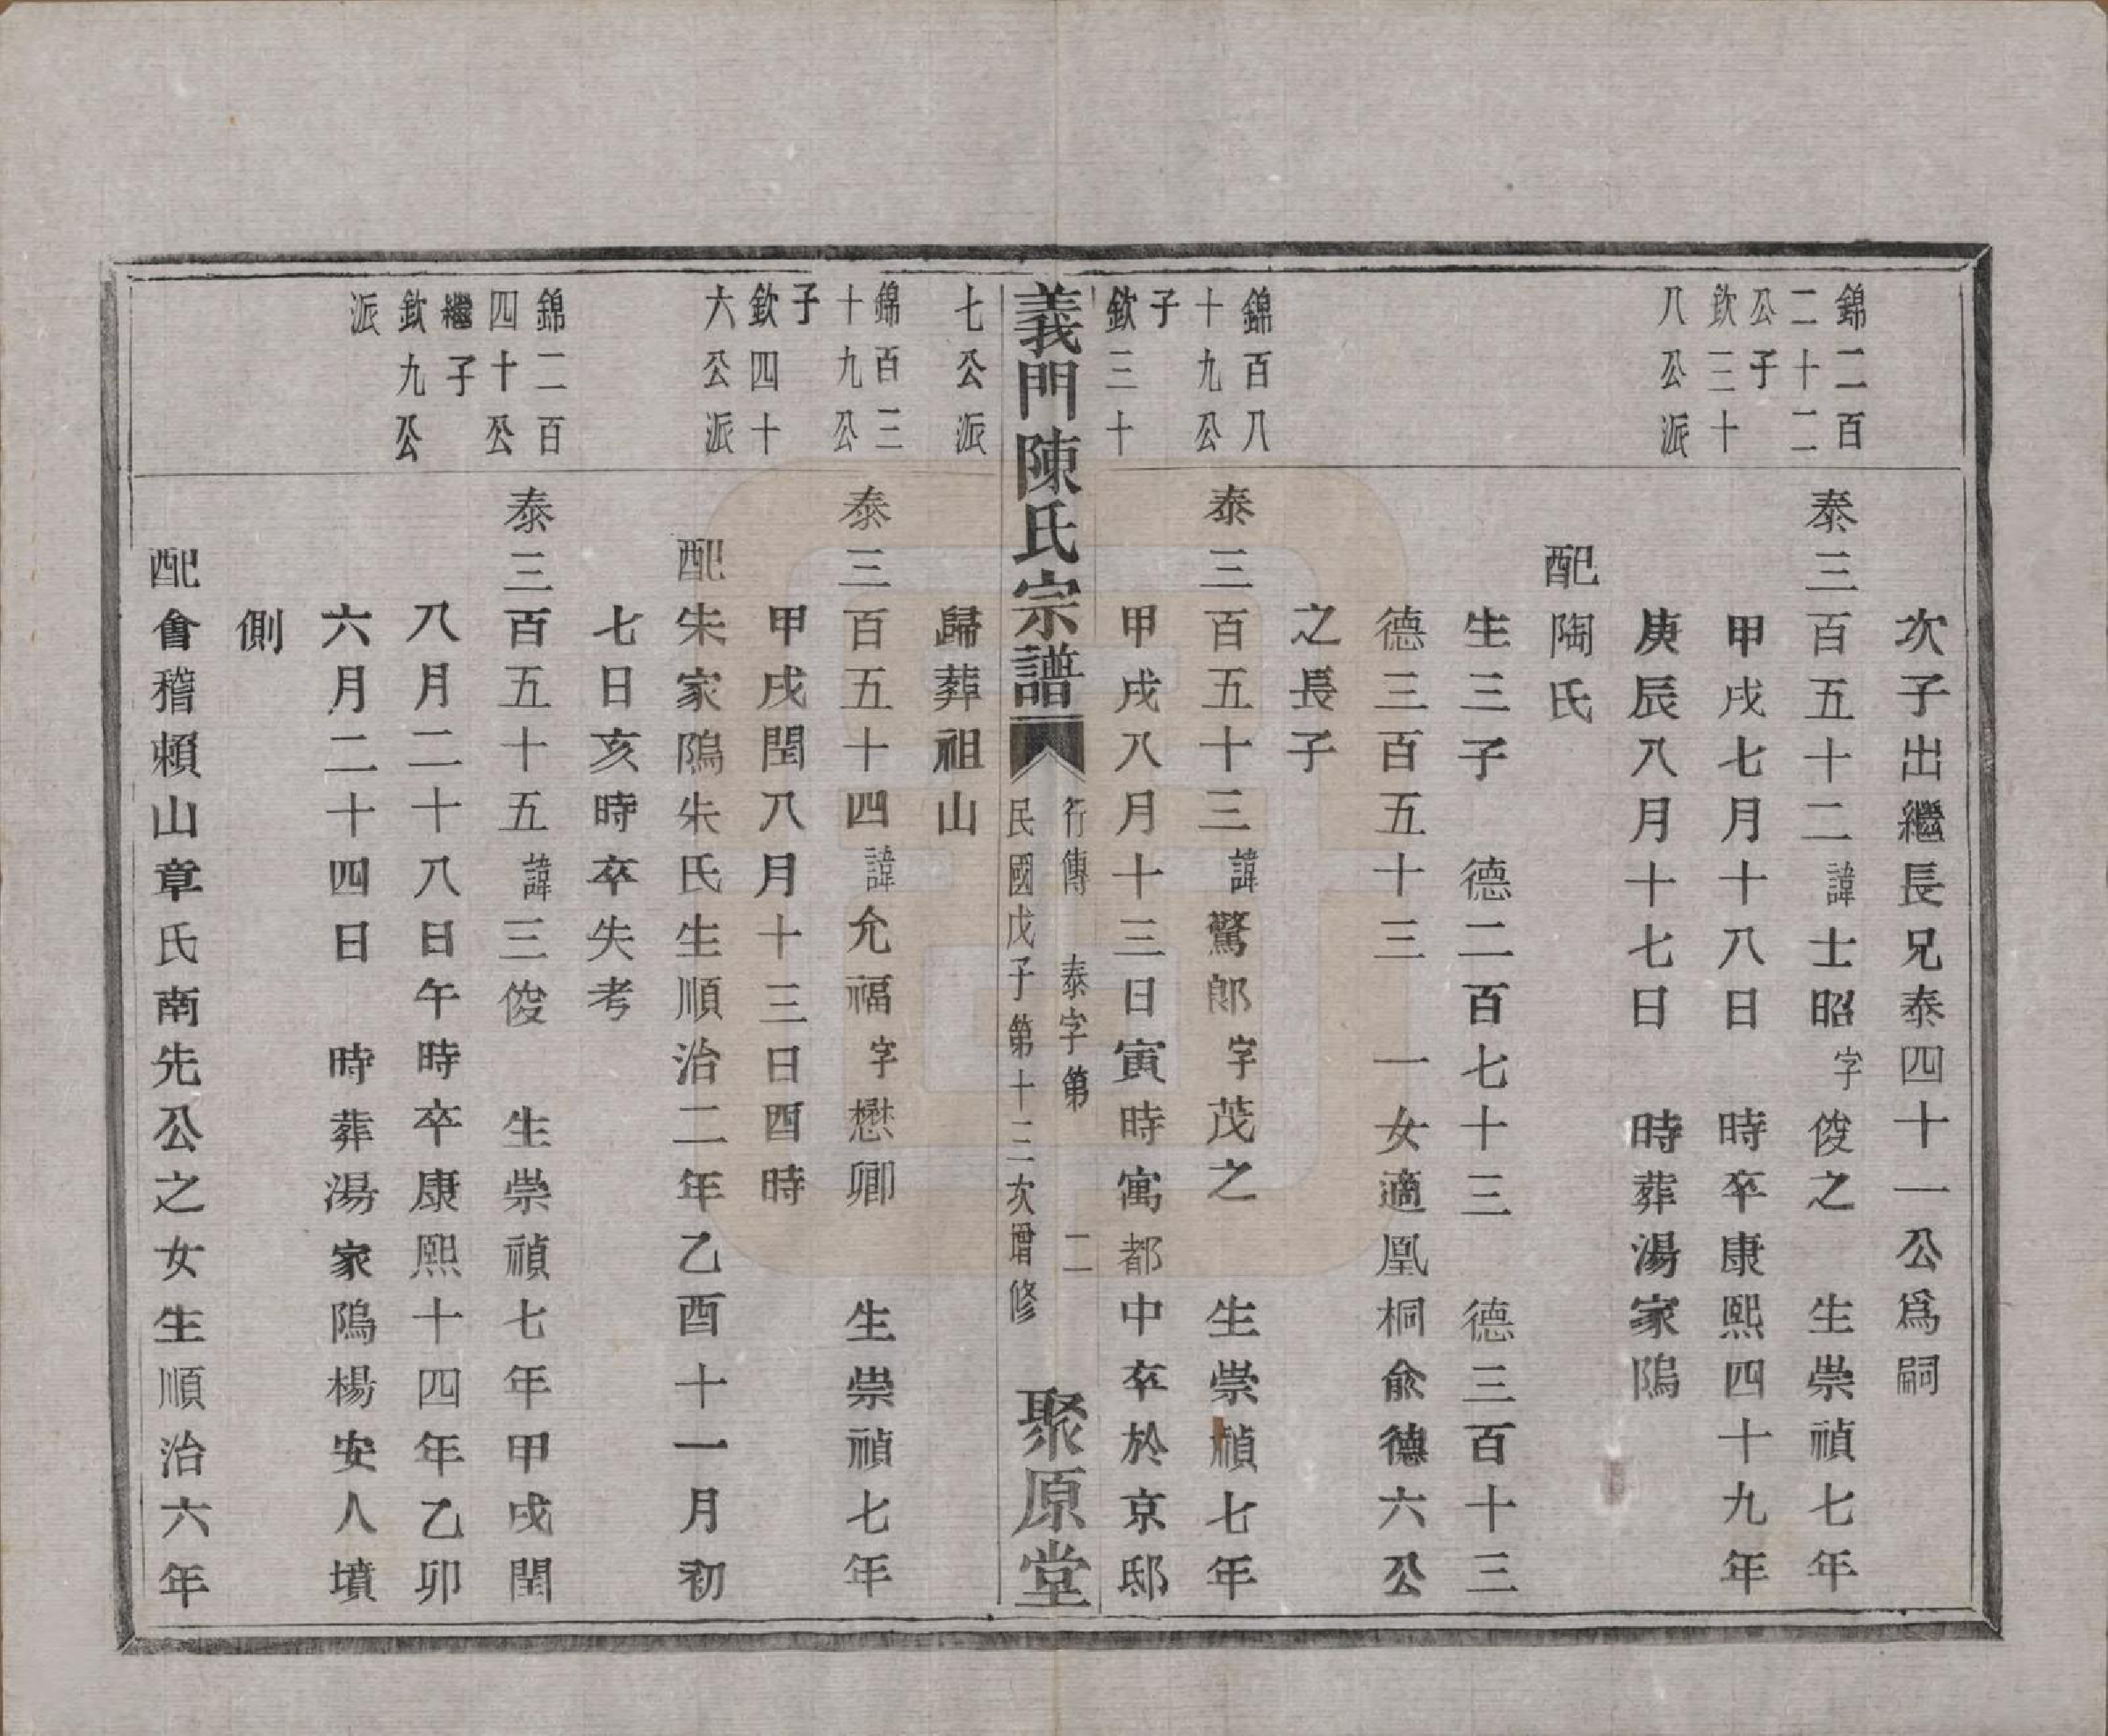 次子出繼長兄泰四十一公爲嗣
錦二百
二十二
公子
欽三十
八公派
泰三百五十二諱士昭字俊之 生崇禎七年
甲戌七月十八日 時卒康熙四十九年
庚辰八月十七日 時葬湯家隖
配陶氏
生三子 德二百七十三 德三百十三
德三百五十三 一女適凰桐俞德六公
之長子
錦百八
十九公
子
欽三十
七公派
泰三百五十三諱驚郎字茂之 生崇禎七年
甲戌八月十三日寅時寓都中卒於京邸
義門陳氏宗譜
行傳 泰字第 二
民國戊子第十三次增修
聚原堂
歸葬祖山
錦百三
十九公
子
欽四十
六公派
泰三百五十四諱允福字懋卿 生崇禎七年
甲戌閏八月十三日酉時
配朱家隖朱氏生順治二年乙酉十一月初
七日亥時卒失考
錦二百
四十公
繼子
欽九公
派
泰三百五十五諱三俊 生崇禎七年甲戌閏
八月二十八日午時卒康熙十四年乙卯
六月二十四日 時葬湯家隖楊安人墳
側
配會稽賴山章氏南先公之女生順治六年